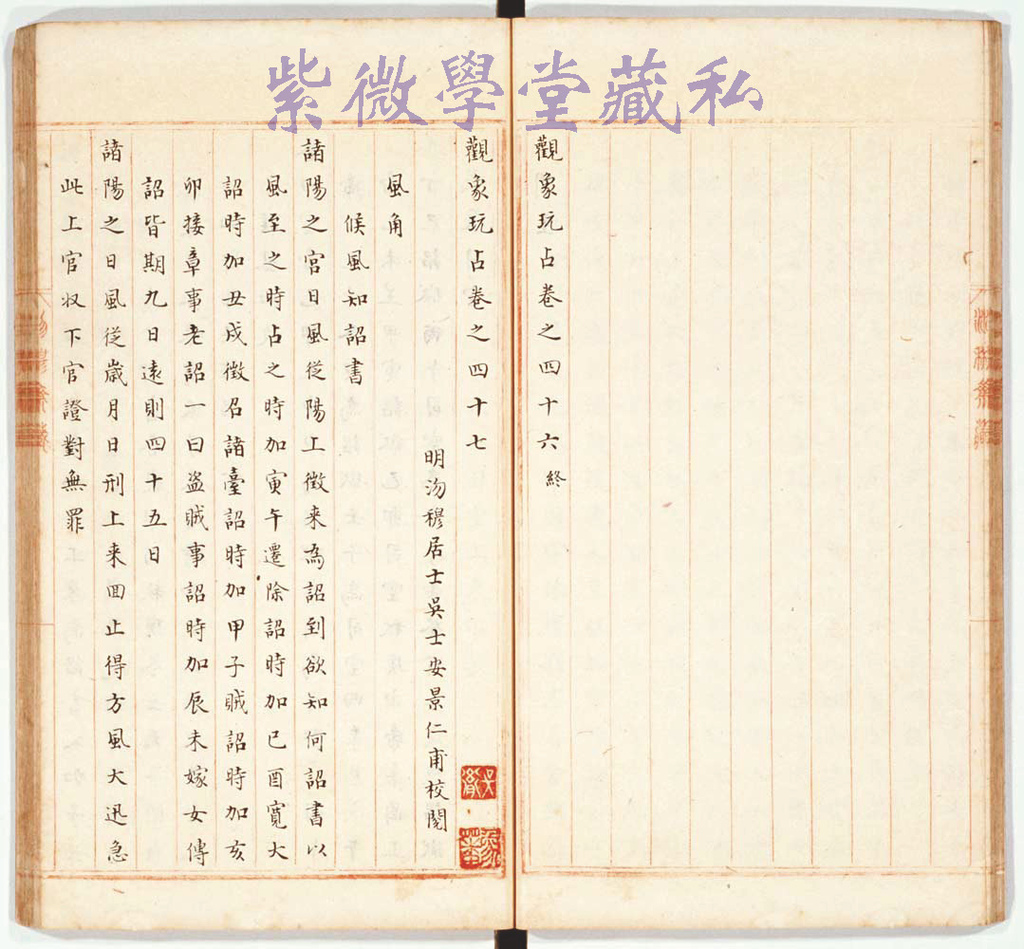 紫微學堂藏私
觀象玩占卷之四十六終
觀象玩占卷之四十七
明沕穆居士吳士安景仁甫校閱
風角
候風知詔書
諸陽之官日風從陽上徵来為詔到欲知何詔書以
風至之時占之時加寅午遷除詔時加巳酉寬大
詔時加丑戌徵名諸臺詔時加甲子賊詔時加亥
卯接章事老詔一曰盗賊事詔時加辰未嫁女傳
詔皆期九日遠則四十五日
諸陽之日風從歲月日刑上来回止得方風大迅急
此上官收下官證對無罪